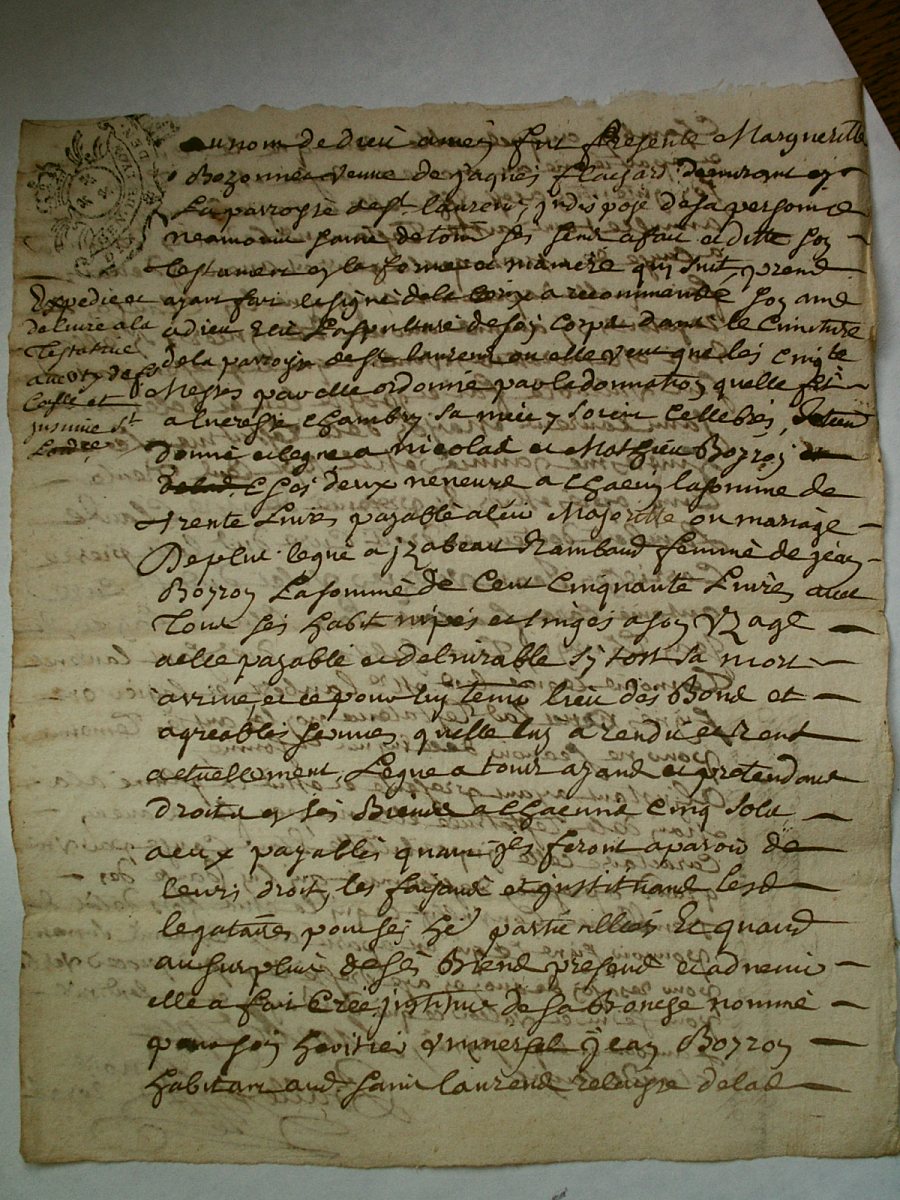 au nom de dieu amen fut presente Margueritte
Bozonnet veuve de jaques flachard demeurant en
La parroisse de st laurent, jndisposé de sa personne
neamoins saine de tous ses sens a fait et ditte son
Testament en la forme et maniere qui suit, prend
ayant fait le signe de la croix a recommandé son ame
a dieu Elu La spulture de son corps dans le cimettiere
de la parroisse de st laurent ou elle veut que les cinq te
Messes par elle ordonné par la donnation quelle fit
a lucresse chambry sa niece y soient cellebrés,
donne et legue a nicolas et Mathieu Boyron
ses deux neveux a chacun la somme de
trente Livres payable a leur Majoritte ou mariage
De plus legue a jzabeau Rambaud femme de jean
Boyron La somme de Cent Cinquante Livres avec
Tout ses habit nipes et linges a son Uzage
a elle payable et delivrable si tost sa mort
arrivé et ce pour luy tenir lieu des Bons et
agreables services quelle luy a rendu et Rent
actuellement, Legue a tous ayant et pretendant
droits en ses Biens a chacune cinq sols
a eux payables quant jls feront aparoir de
leurs droit, les faisant et jnstituant lesd
legataires pour ses he part Et quand
au surplus de ses Biens presend et advenir
elle a fait Créé jnstitué de sa Bouche nommé
pour son heritier Universel jean Boyron
habitant aud saint laurend relaissé delad
Expedie et
delivré a la
Testatrice